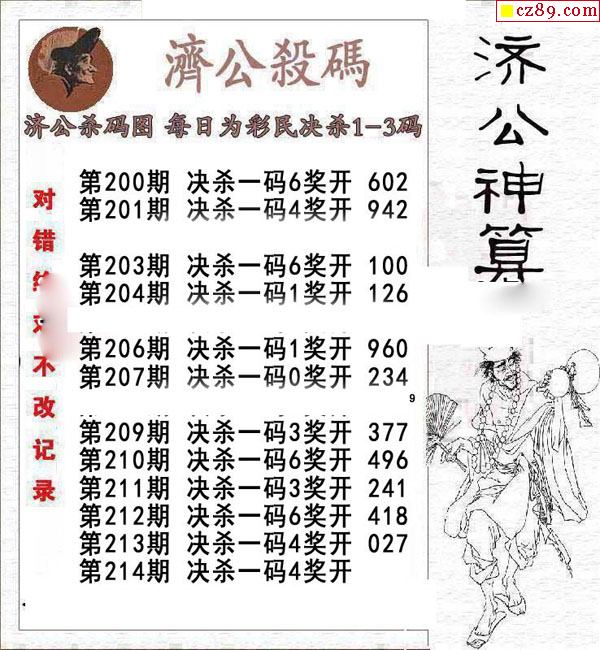 cz89.com
濟公殺碼
济公神算
济公杀码图 每日为彩民决杀1-3码
第200期 决杀一码6奖开 602
第201期 决杀一码4奖开 942
第203期 决杀一码6奖开 100
第204期 决杀一码1奖开 126
第206期 决杀一码1奖开 960
第207期 决杀一码0奖开 234
9
第209期 决杀一码3奖开 377
第210期 决杀一码6奖开 496
第211期 决杀一码3奖开 241
第212期 决杀一码6奖开 418
第213期 决杀一码4奖开 027
第214期 决杀一码4奖开
对错 不改记录